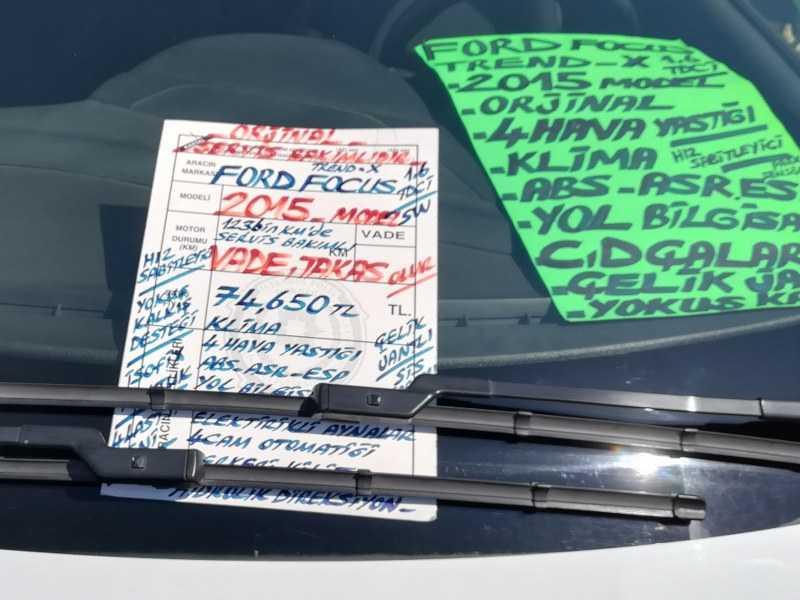 ORJİNAL
SERVİS BAKIMLIDIR
ARACIN
MARKASI
TREND-X
FORD FOCUS
1.6
TDCİ
MODELİ
2015-MODEL
SW
MOTOR
DURUMU
(KM)
123bin KM'de
SERVİS BAKIMLI
KM
VADE
VADE, TAKAS OLUR
74,650 TL
TL.
HIZ
SABİTLEYİCİ
YOKUŞ
KALKIŞ
DESTEĞİ
KLİMA
4 HAVA YASTIĞI
ABS-ASR-ESP
YOL BİLGİS
ÇELİK
JANTLI
ELEKTİRİKLİ AYNALAR
4 CAM OTOMATİĞİ
HİDROLİK DİREKSİYON-
FORD FOCUS
TREND-X 1.6
TDCİ
-2015 MODEL
-ORJİNAL
-4 HAVA YASTIĞI
-KLİMA HIZ
SABİTLEYİCİ
-ABS-ASR.ES
-YOL BİLGİSA
C,D ÇALAR
-ÇELİK JA
-YOKUŞ KA